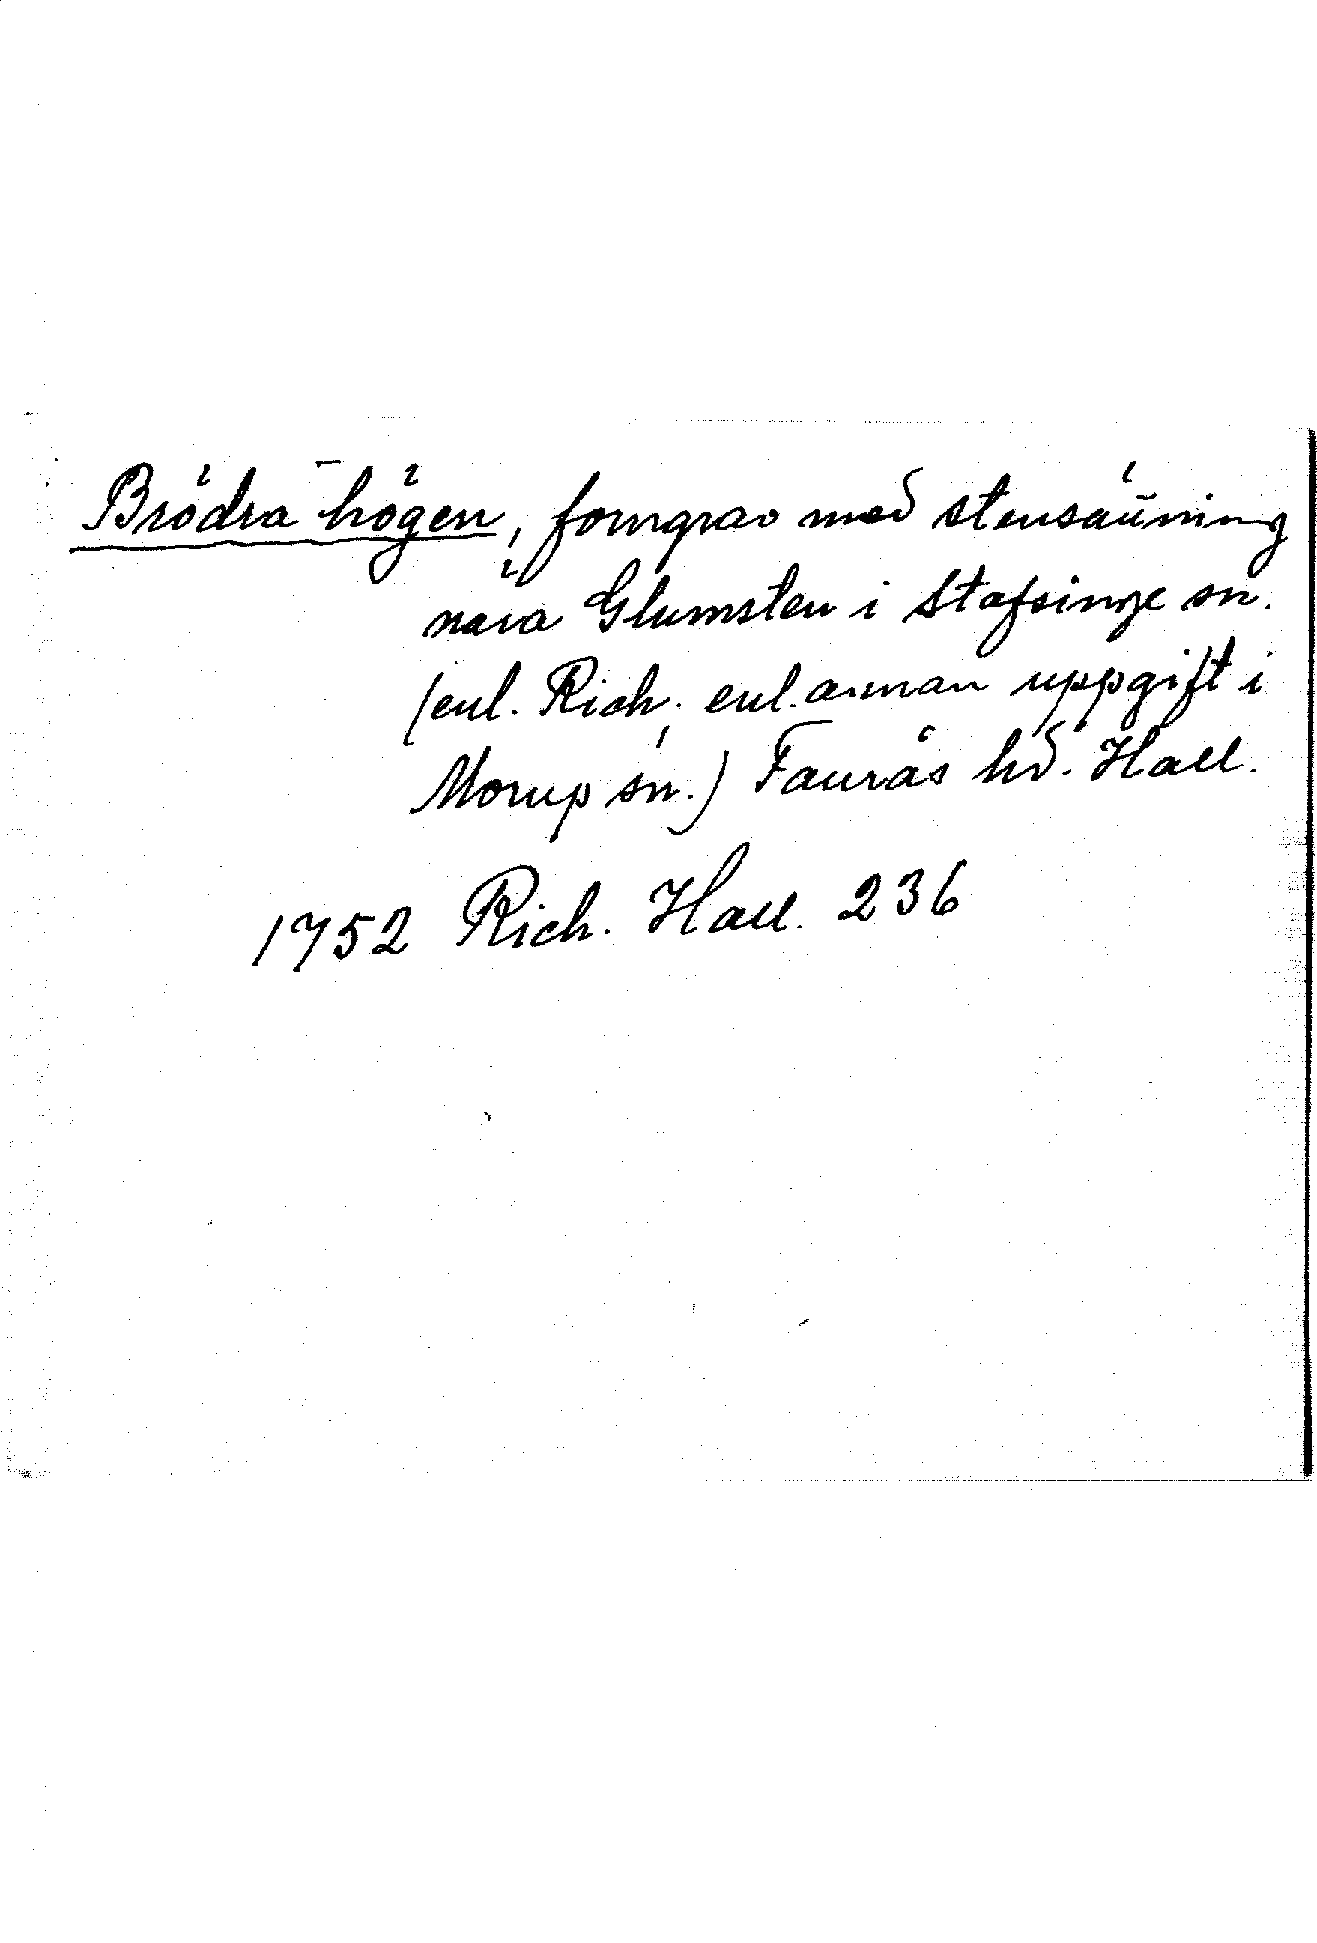 Brödra högen, forngrav med stensättning
nära Glumsten i Stafsinge sn.
(enl. Rich., enl. annan uppgift i
Morup sn.) Faurås hd. Hall.
1752 Rich. Hall. 236